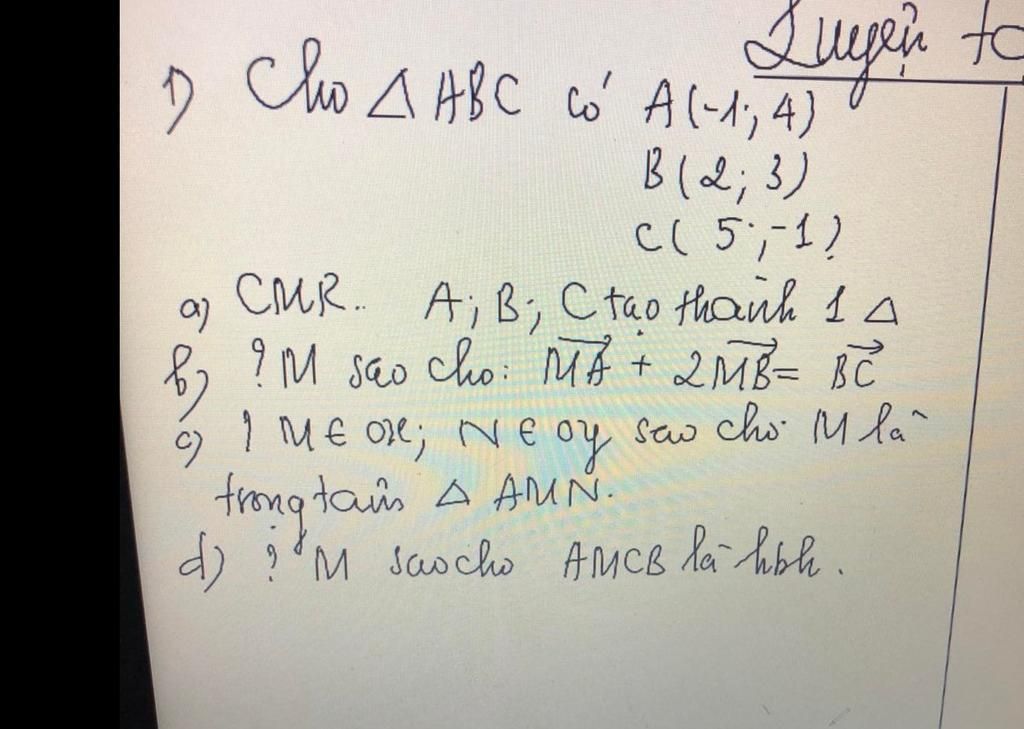 Luyện
1) Cho △ ABC có A(-1; 4)
B(2; 3)
C( 5; -1)
a) CMR.. A; B; C tạo thành 1 △
b) ? M sao cho: MA + 2MB = BC
c) ? M ∈ ox; N ∈ oy sao cho M là
trọng tâm △ AMN.
d) ? M sao cho AMCB là hbh.